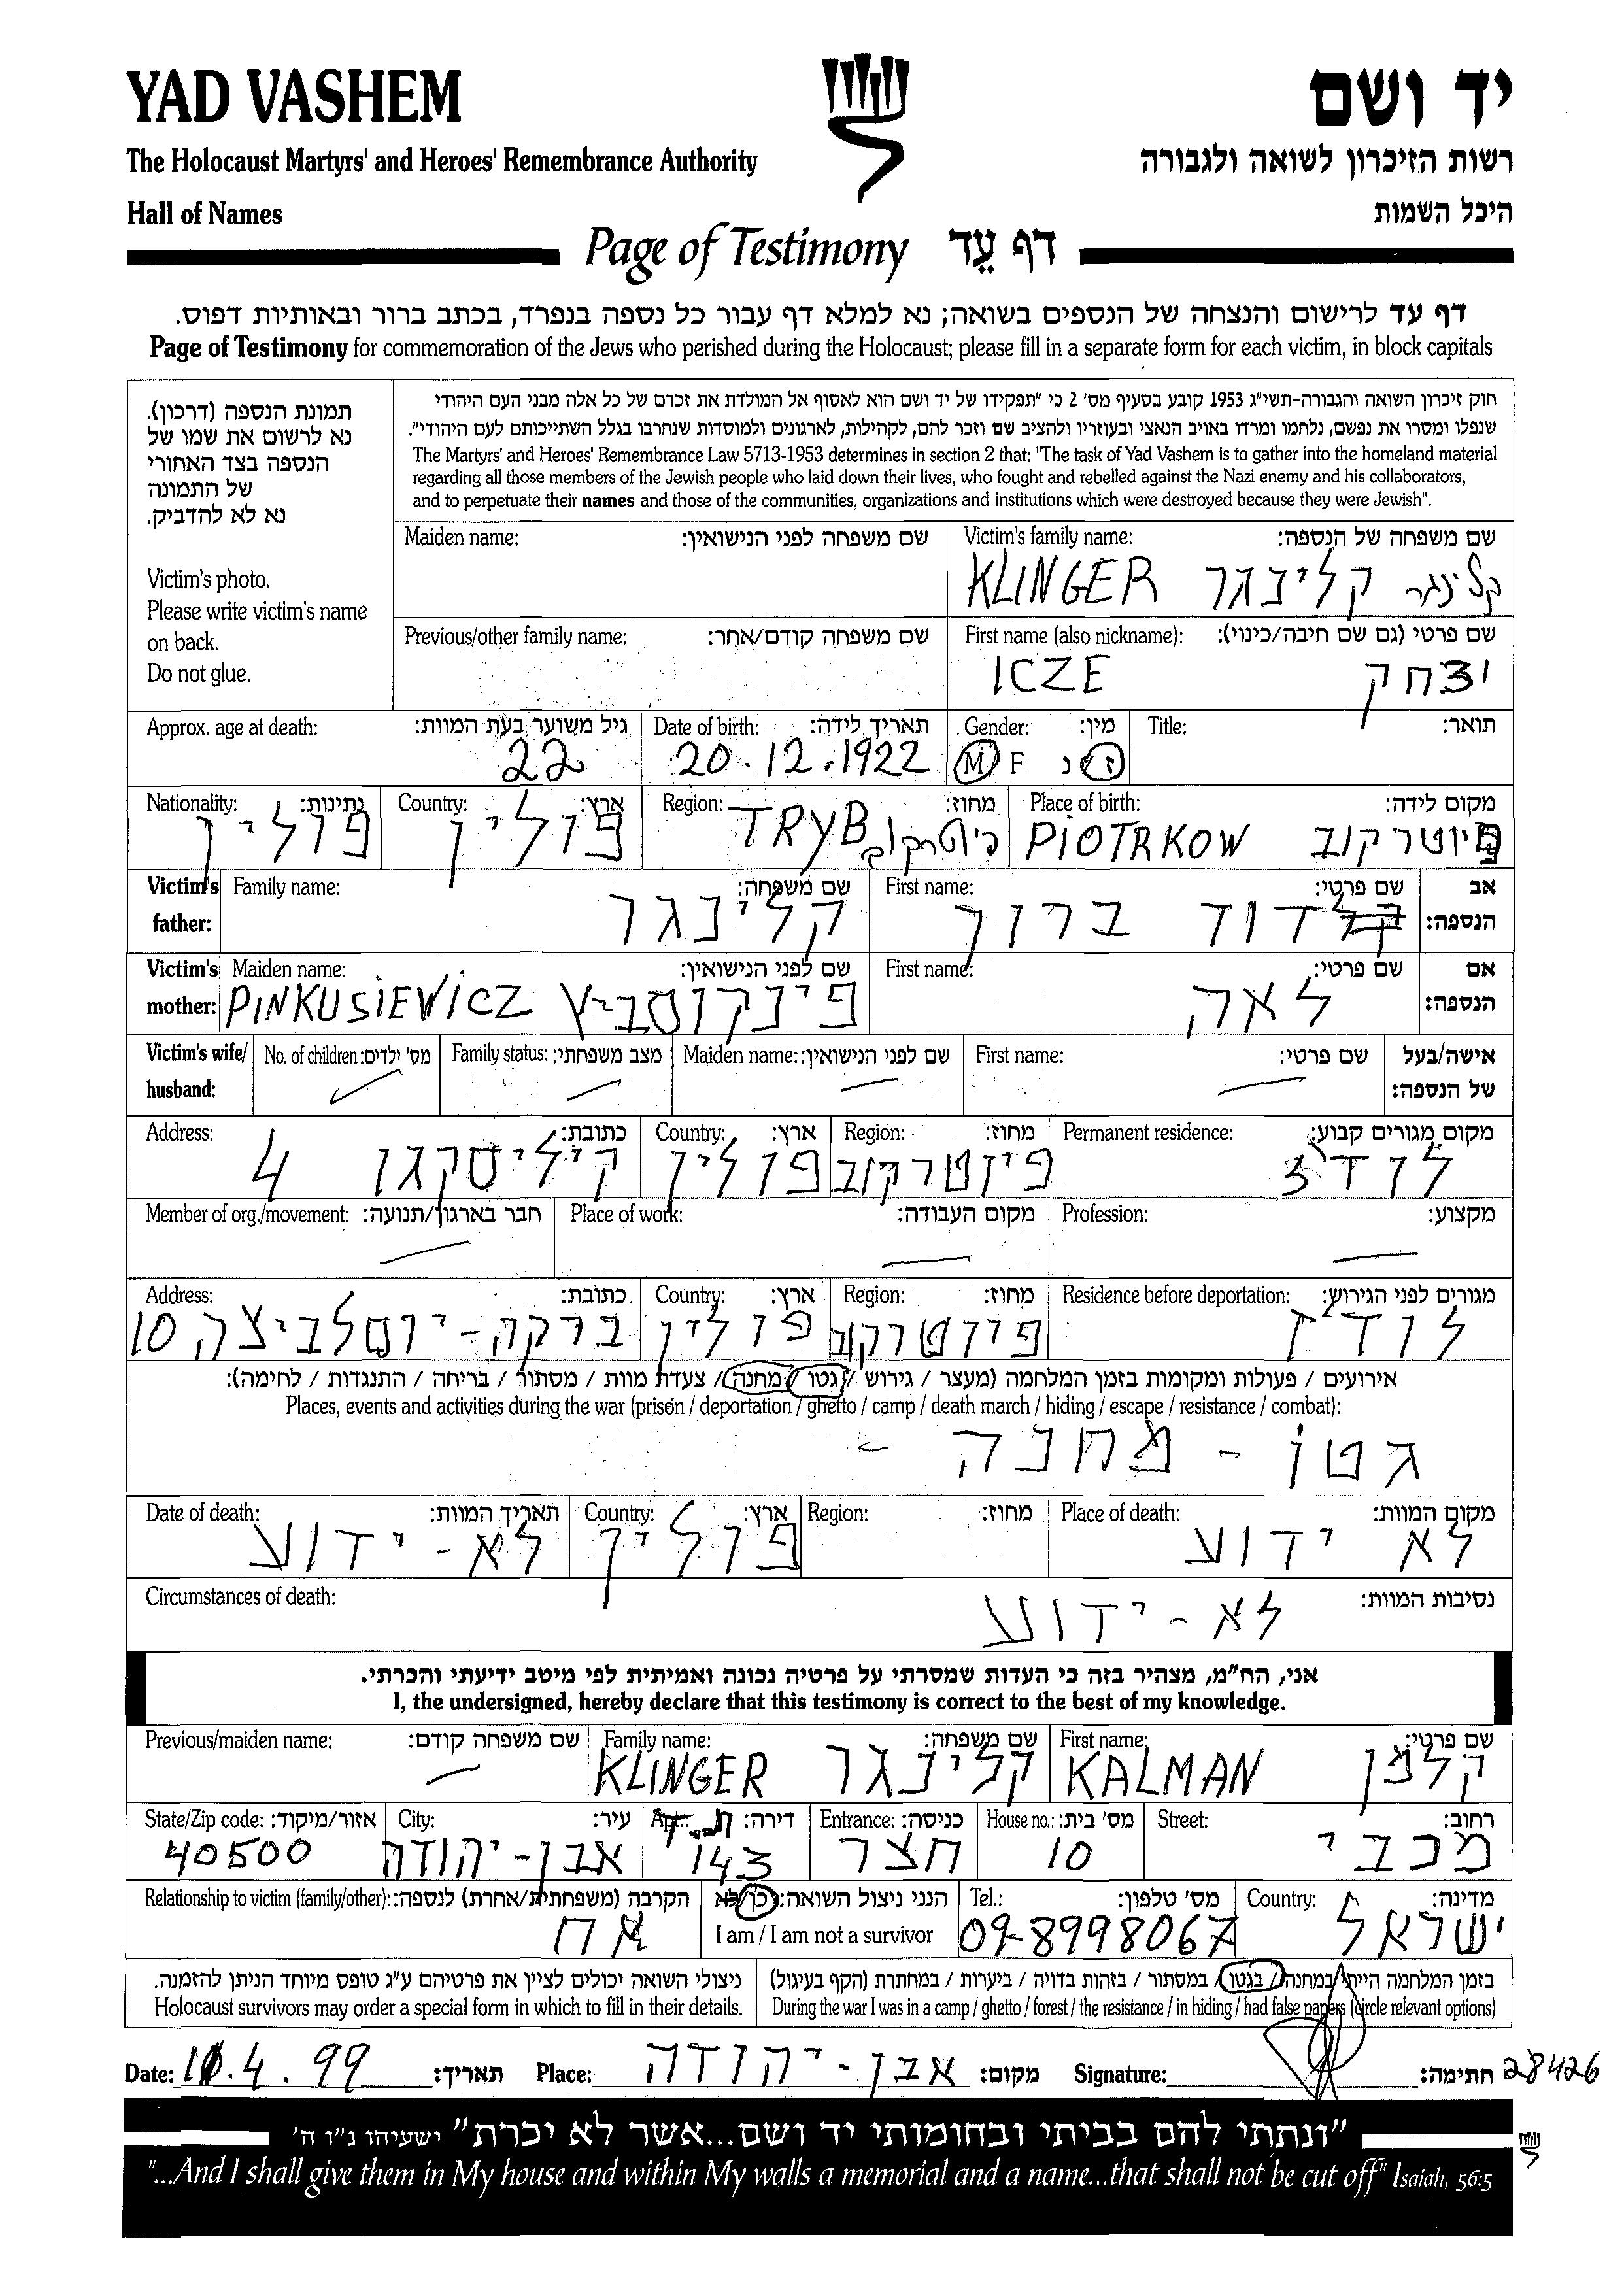 YAD VASHEM יד ושם
The Holocaust Martyrs' and Heroes' Remembrance Authority רשות הזיכרון לשואה ולגבורה
Hall of Names היכל השמות
Page of Testimony דף עֵד
דף עד לרישום והנצחה של הנספים בשואה; נא למלא דף עבור כל נספה בנפרד, בכתב ברור ובאותיות דפוס.
Page of Testimony for commemoration of the Jews who perished during the Holocaust; please fill in a separate form for each victim, in block capitals
תמונת הנספה (דרכון).
נא לרשום את שמו של
הנספה בצד האחורי
של התמונה
נא לא להדביק.
Victim's photo.
Please write victim's name
on back.
Do not glue.
חוק זיכרון השואה והגבורה-תשי"ג 1953 קובע בסעיף מס' 2 כי "תפקידו של יד ושם הוא לאסוף אל המולדת את זכרם של כל אלה מבני העם היהודי
שנפלו ומסרו את נפשם, נלחמו ומרדו באויב הנאצי ובעוזריו ולהציב שם וזכר להם, לקהילות, לארגונים ולמוסדות שנחרבו בגלל השתייכותם לעם היהודי".
The Martyrs' and Heroes' Remembrance Law 5713-1953 determines in section 2 that: "The task of Yad Vashem is to gather into the homeland material
regarding all those members of the Jewish people who laid down their lives, who fought and rebelled against the Nazi enemy and his collaborators,
and to perpetuate their names and those of the communities, organizations and institutions which were destroyed because they were Jewish".
Maiden name: שם משפחה לפני הנישואין: Victim's family name: שם משפחה של הנספה:
KLINGER קלינגר קלינגר
Previous/other family name: שם משפחה קודם/אחר: First name (also nickname): שם פרטי (גם שם חיבה/כינוי):
ICZE יצחק
Approx. age at death: גיל משוער בעת המוות: Date of birth: תאריך לידה: Gender: מין: Title: תואר:
22 20.12.1922 M F ז / נ
Nationality: נתינות: Country: ארץ: Region: מחוז: Place of birth: מקום לידה:
פולין פולין TRYB פיוטרקוב PIOTRKOW פיוטרקוב
Victim's father: Family name: שם משפחה: First name: שם פרטי: אב הנספה:
קלינגר דוד ברוך
Victim's mother: Maiden name: שם לפני הנישואין: First name: שם פרטי: אם הנספה:
PINKUSIEWICZ פינקוסביץ לאה
Victim's wife/ husband: No. of children: מס' ילדים: Family status: מצב משפחתי: Maiden name: שם לפני הנישואין: First name: שם פרטי: אישה/בעל של הנספה:
Address: כתובת: Country: ארץ: Region: מחוז: Permanent residence: מקום מגורים קבוע:
קיליסקגו 4 פולין פיוטרקוב לודז
Member of org./movement: חבר בארגון/תנועה: Place of work: מקום העבודה: Profession: מקצוע:
Address: כתובת: Country: ארץ: Region: מחוז: Residence before deportation: מגורים לפני הגירוש:
10 פולין פיוטרקוב לודז
אירועים / פעולות ומקומות בזמן המלחמה (מעצר / גירוש / גטו / מחנה / צעדת מוות / מסתור / בריחה / התנגדות / לחימה):
Places, events and activities during the war (prison / deportation / ghetto / camp / death march / hiding / escape / resistance / combat):
גטו - מחנה -
Date of death: תאריך המוות: Country: ארץ: Region: מחוז: Place of death: מקום המוות:
לא-ידוע פולין לא ידוע
Circumstances of death: נסיבות המוות:
לא-ידוע
אני, הח"מ, מצהיר בזה כי העדות שמסרתי על פרטיה נכונה ואמיתית לפי מיטב ידיעתי והכרתי.
I, the undersigned, hereby declare that this testimony is correct to the best of my knowledge.
Previous/maiden name: שם משפחה קודם: Family name: שם משפחה: First name: שם פרטי:
KLINGER קלינגר KALMAN קלמן
State/Zip code: אזור/מיקוד: City: עיר: Apt.: דירה: Entrance: כניסה: House no.: מס' בית: Street: רחוב:
40500 אבן-יהודה 143 חצר 10 מכבי
Relationship to victim (family/other): הקרבה (משפחתית/אחרת) לנספה: הנני ניצול השואה: כן/לא Tel.: מס' טלפון: Country: מדינה:
אח I am / I am not a survivor 09-8998067 ישראל
ניצולי השואה יכולים לציין את פרטיהם ע"ג טופס מיוחד הניתן להזמנה. בזמן המלחמה הייתי במחנה / בגטו / במסתור / בזהות בדויה / ביערות / במחתרת (הקף בעיגול)
Holocaust survivors may order a special form in which to fill in their details. During the war I was in a camp / ghetto / forest / the resistance / in hiding / had false papers (circle relevant options)
Date: 11.4.99 תאריך: Place: אבן-יהודה מקום: Signature: חתימה: 28426
"ונתתי להם בביתי ובחומותי יד ושם...אשר לא יכרת" ישעיהו נ"ו ה'
"...And I shall give them in My house and within My walls a memorial and a name...that shall not be cut off" Isaiah, 56:5